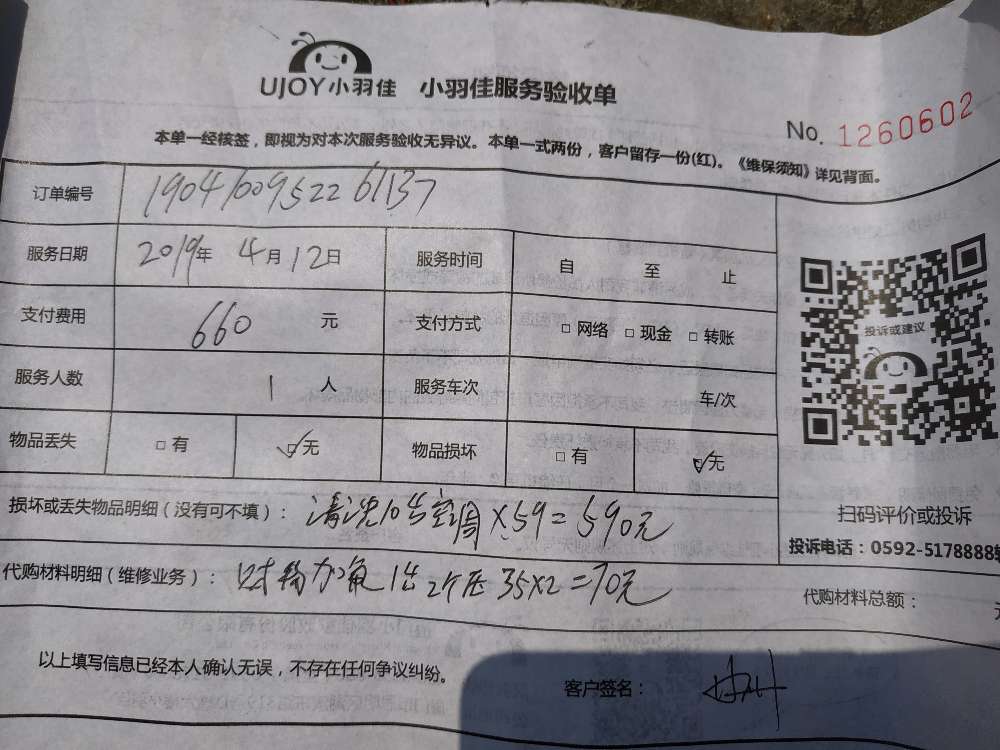 UJOY小羽佳 小羽佳服务验收单
No. 1260602
本单一经核签，即视为对本次服务验收无异议。本单一式两份，客户留存一份(红)。《维保须知》详见背面。
订单编号 19041009522 61137
服务日期 2019年 4月12日 服务时间 自 至 止
支付费用 660 元 支付方式 □ 网络 □ 现金 □ 转账
投诉或建议
服务人数 1 人 服务车次 车/次
物品丢失 □ 有 ☑无 物品损坏 □ 有 ☑无
损坏或丢失物品明细（没有可不填）： 清洗10台空调×59=590元
扫码评价或投诉
投诉电话：0592-5178888转
代购材料明细（维修业务）： 加氟1台2个压 35×2=70元
代购材料总额：
以上填写信息已经本人确认无误，不存在任何争议纠纷。
客户签名：